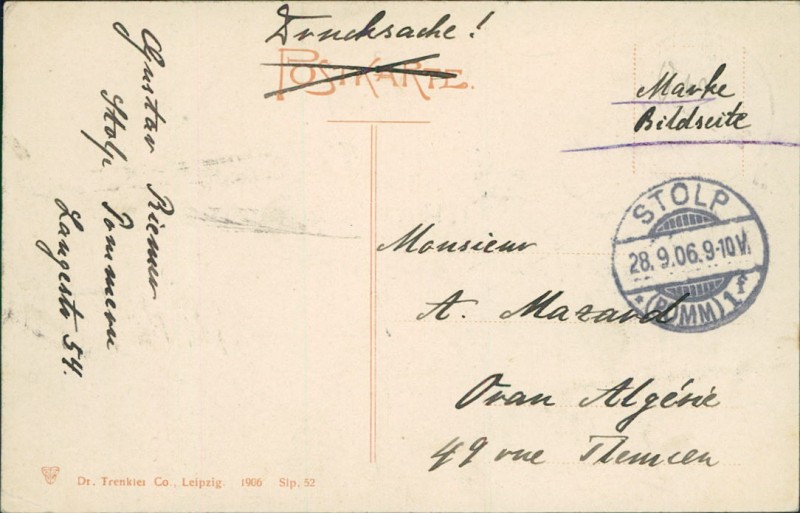 Drucksache!
POSTKARTE.
Marke
Bildseite
STOLP
28.9.06.9-10V.
* (POMM) 1 f
Monsieur
A. Mazard
Oran Algérie
49 rue Tlemcen
Gustav Riemer
Stolp Pommern
Langestr 54.
Dr. Trenkler Co., Leipzig. 1906 Slp. 52